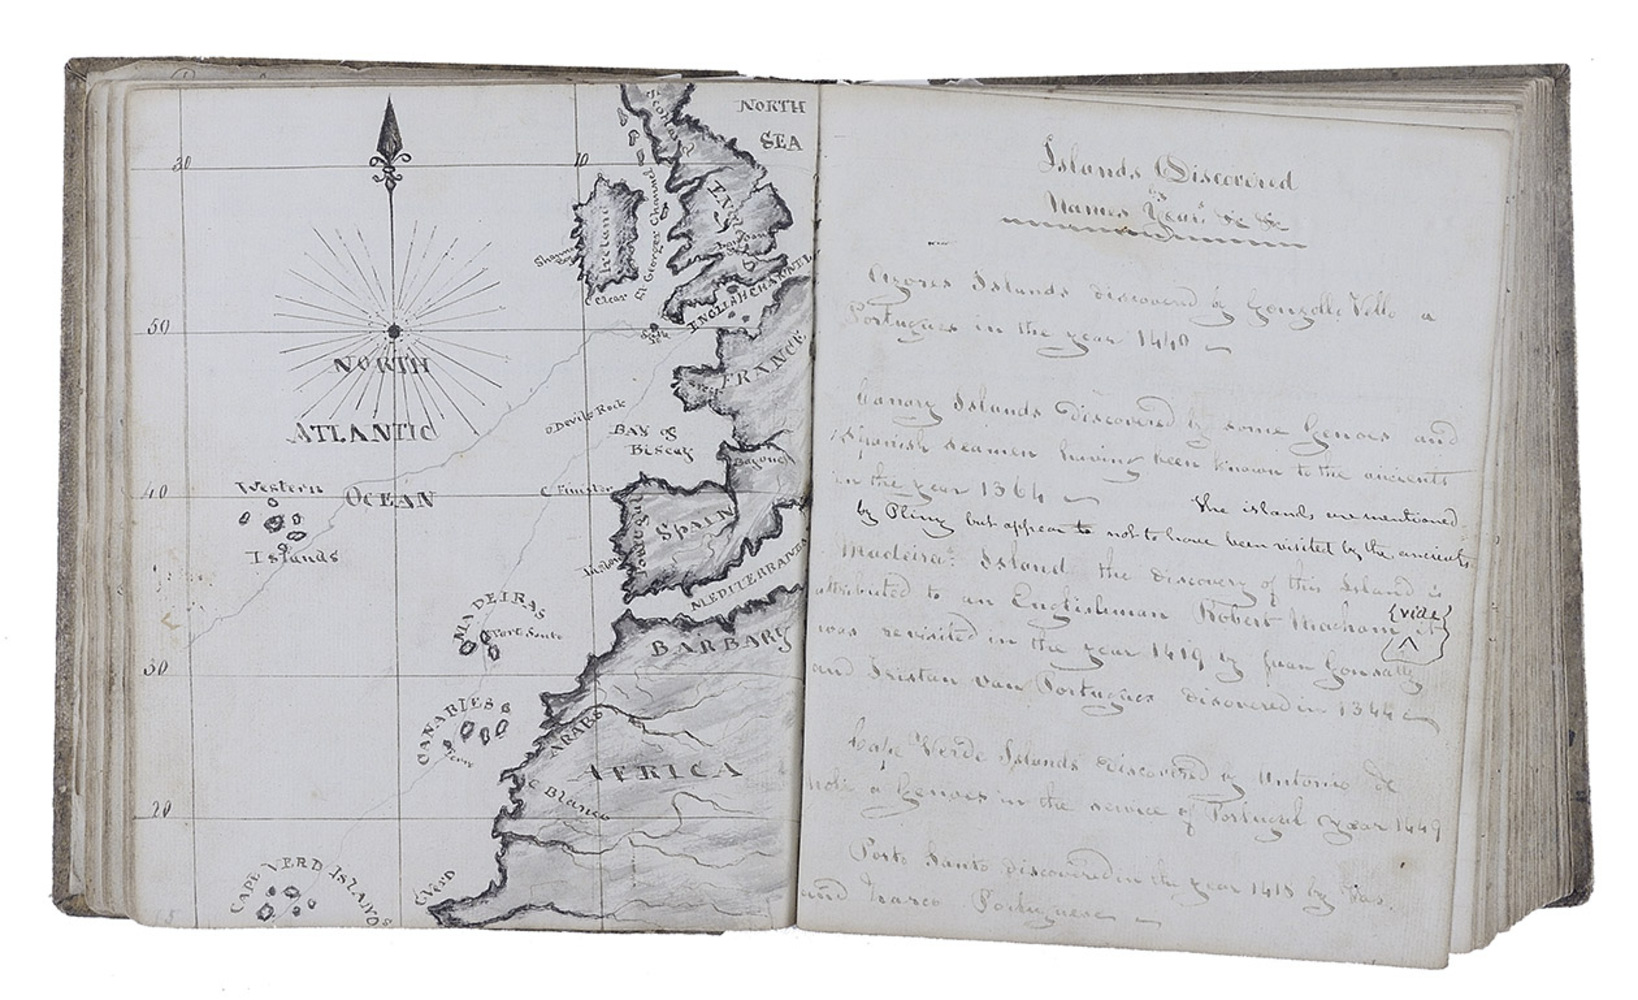 30
10
50
40
30
20
NORTH
SEA
Scotland
Ireland
St Georges Channel
C Clear
ENGLISH CHANNEL
FRANCE
NORTH
ATLANTIC
OCEAN
Devils Rock
BAY of
Biscay
Bayone
C Finister
SPAIN
MEDITERRANEA
Western
Islands
MADEIRAS
Porto Santo
BARBARY
CANARIES
Ferro
ARABS
AFRICA
C Blanco
CAPE VERD ISLANDS
C Verd
Islands Discovered
by
Names Year &c &c
Azores Islands discovered by Gonzollo Vello a
Portugues in the year 1440
Canary Islands discovered by some Genoes and
Spanish seamen having been known to the ancients
in the year 1364
The islands are mentioned
by Pliny but appear to not to have been visited by the ancients
Madeira Island the discovery of this Island is
attributed to an Englishman Robert Macham it
{vide}
was revisited in the year 1419 by Juan Gonsalles
and Tristan van Portugues discovered in 1344
Cape Verde Islands discovered by Antonio de
noli a Genoes in the service of Portugal year 1449
Porto Santo discovered in the year 1418 by Vas
and Zarco Portuguese